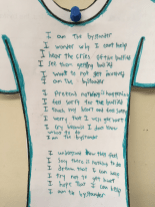 I am the bystander
I wonder why I can't help
I hear the cries of the bullied
I see them getting bullied
I want to not get involved
I am the bystander
I pretend nothing is happening
I feel sorry for the bullied
I touch my heart and feel
I worry that I will get hurt
I cry because I just don't
know what to do
I am the bystander
I understand how they feel
I say there is nothing to do
I dream that I can help
I try not to get hurt
I hope that I can help
I am the bystander